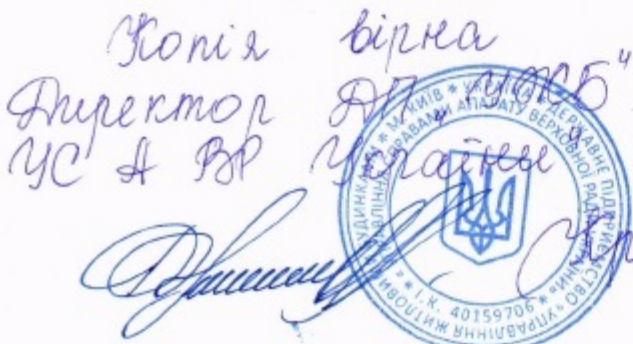 Копія вірна
Директор ДП „УЖБ"
УС А ВР України
* М. КИЇВ * УКРАЇНА * ДЕРЖАВНЕ ПІДПРИЄМСТВО «УПРАВЛІННЯ ЖИТЛОВИМИ БУДИНКАМИ»
УПРАВЛІННЯ СПРАВАМИ АПАРАТУ ВЕРХОВНОЇ РАДИ УКРАЇНИ
* І.К. 40159706 *